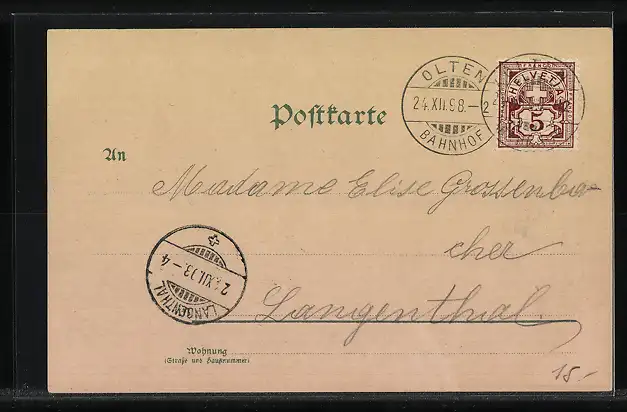 Postkarte
OLTEN
24.XII.98.–2
BAHNHOF
HELVETIA
5
An
Madame Elise Grossenba-
cher
Langenthal.
LANGENTHAL
Wohnung
(Straße und Hausnummer)
15.-